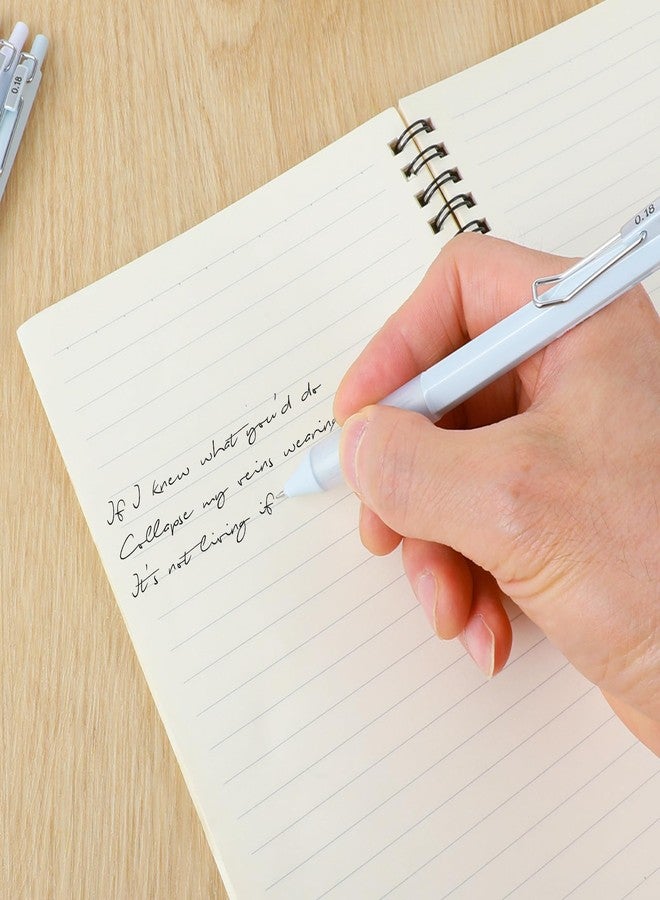 0.18
0.18
If I knew what you'd do
Collapse my veins wearing
It's not living if